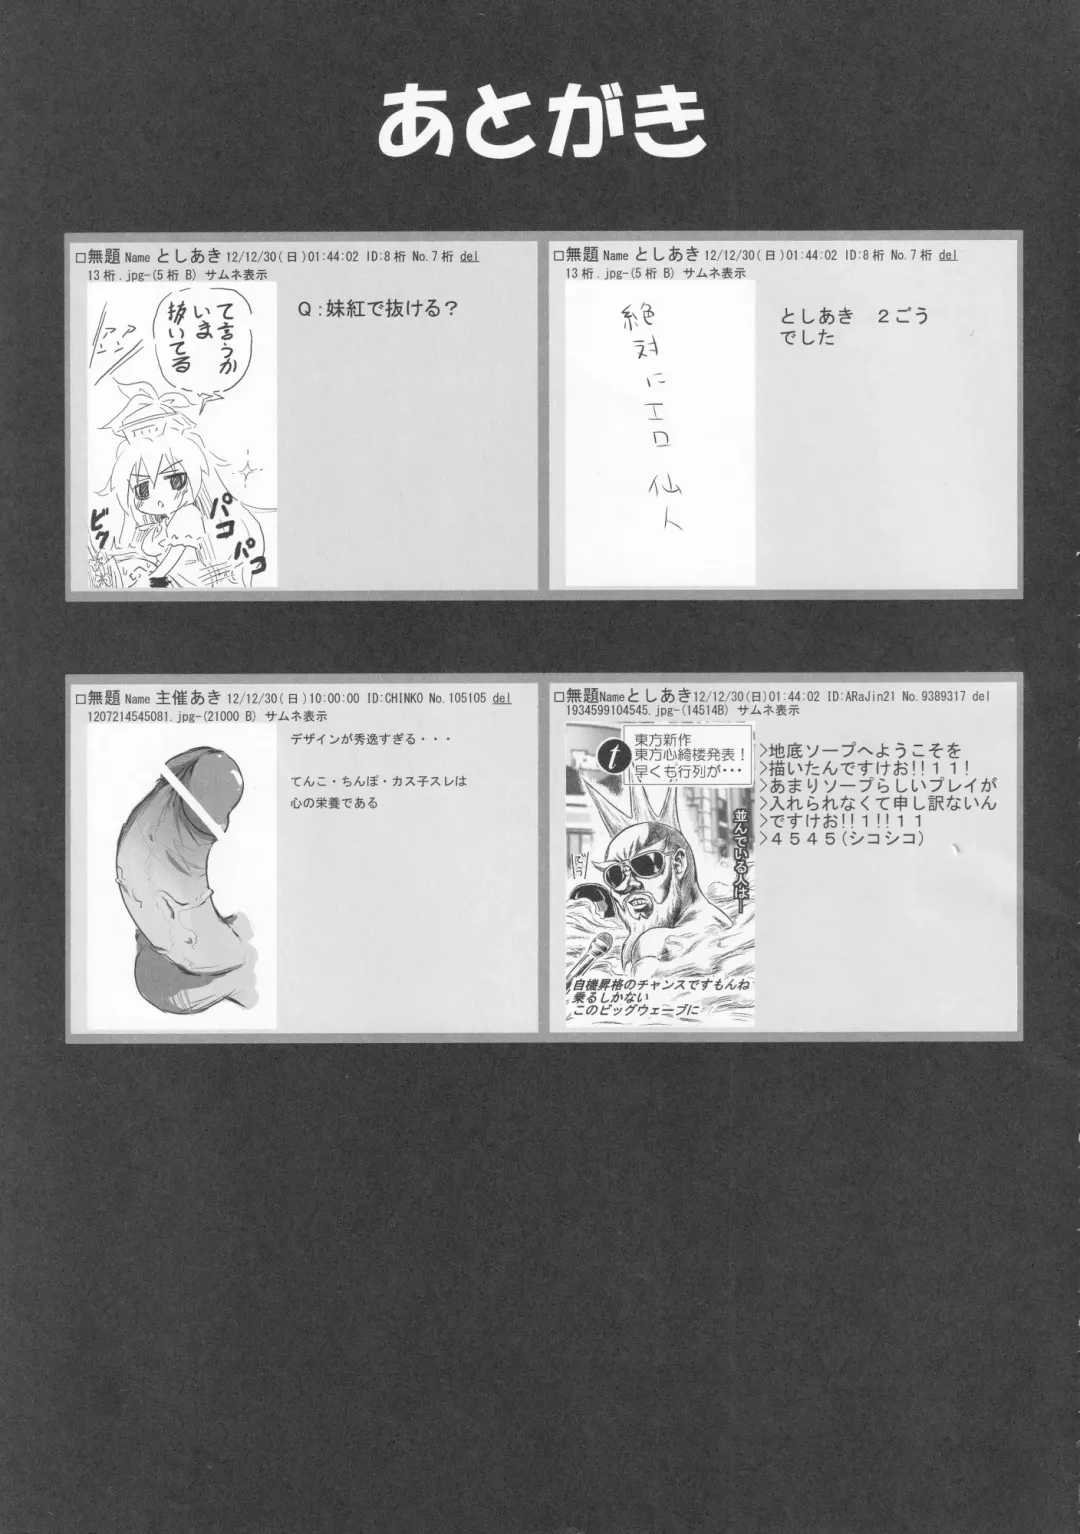 あとがき
□無題 Name としあき 12/12/30(日)01:44:02 ID:8桁 No.7桁 del
13桁.jpg-(5桁 B) サムネ表示
Q:妹紅で抜ける?
て言うか
いま
抜いてる
ハァハァ
パコ
パコ
ビクッ
□無題 Name としあき 12/12/30(日)01:44:02 ID:8桁 No.7桁 del
13桁.jpg-(5桁 B) サムネ表示
絶対にエロ仙人
としあき 2ごう
でした
□無題 Name 主催あき 12/12/30(日)10:00:00 ID:CHINKO No.105105 del
1207214545081.jpg-(21000 B) サムネ表示
デザインが秀逸すぎる・・・
てんこ・ちんぽ・カス子スレは
心の栄養である
□無題Nameとしあき12/12/30(日)01:44:02 ID:ARaJin21 No.9389317 del
1934599104545.jpg-(14514B) サムネ表示
t
東方新作
東方心綺楼発表!
早くも行列が・・・
並んでいる人はー
自機昇格のチャンスですもんね
乗るしかない
このビッグウェーブに
>地底ソープへようこそを
>描いたんですけお!!11!
>あまりソープらしいプレイが
>入れられなくて申し訳ないん
>ですけお!!1!!11
>4545(シコシコ)